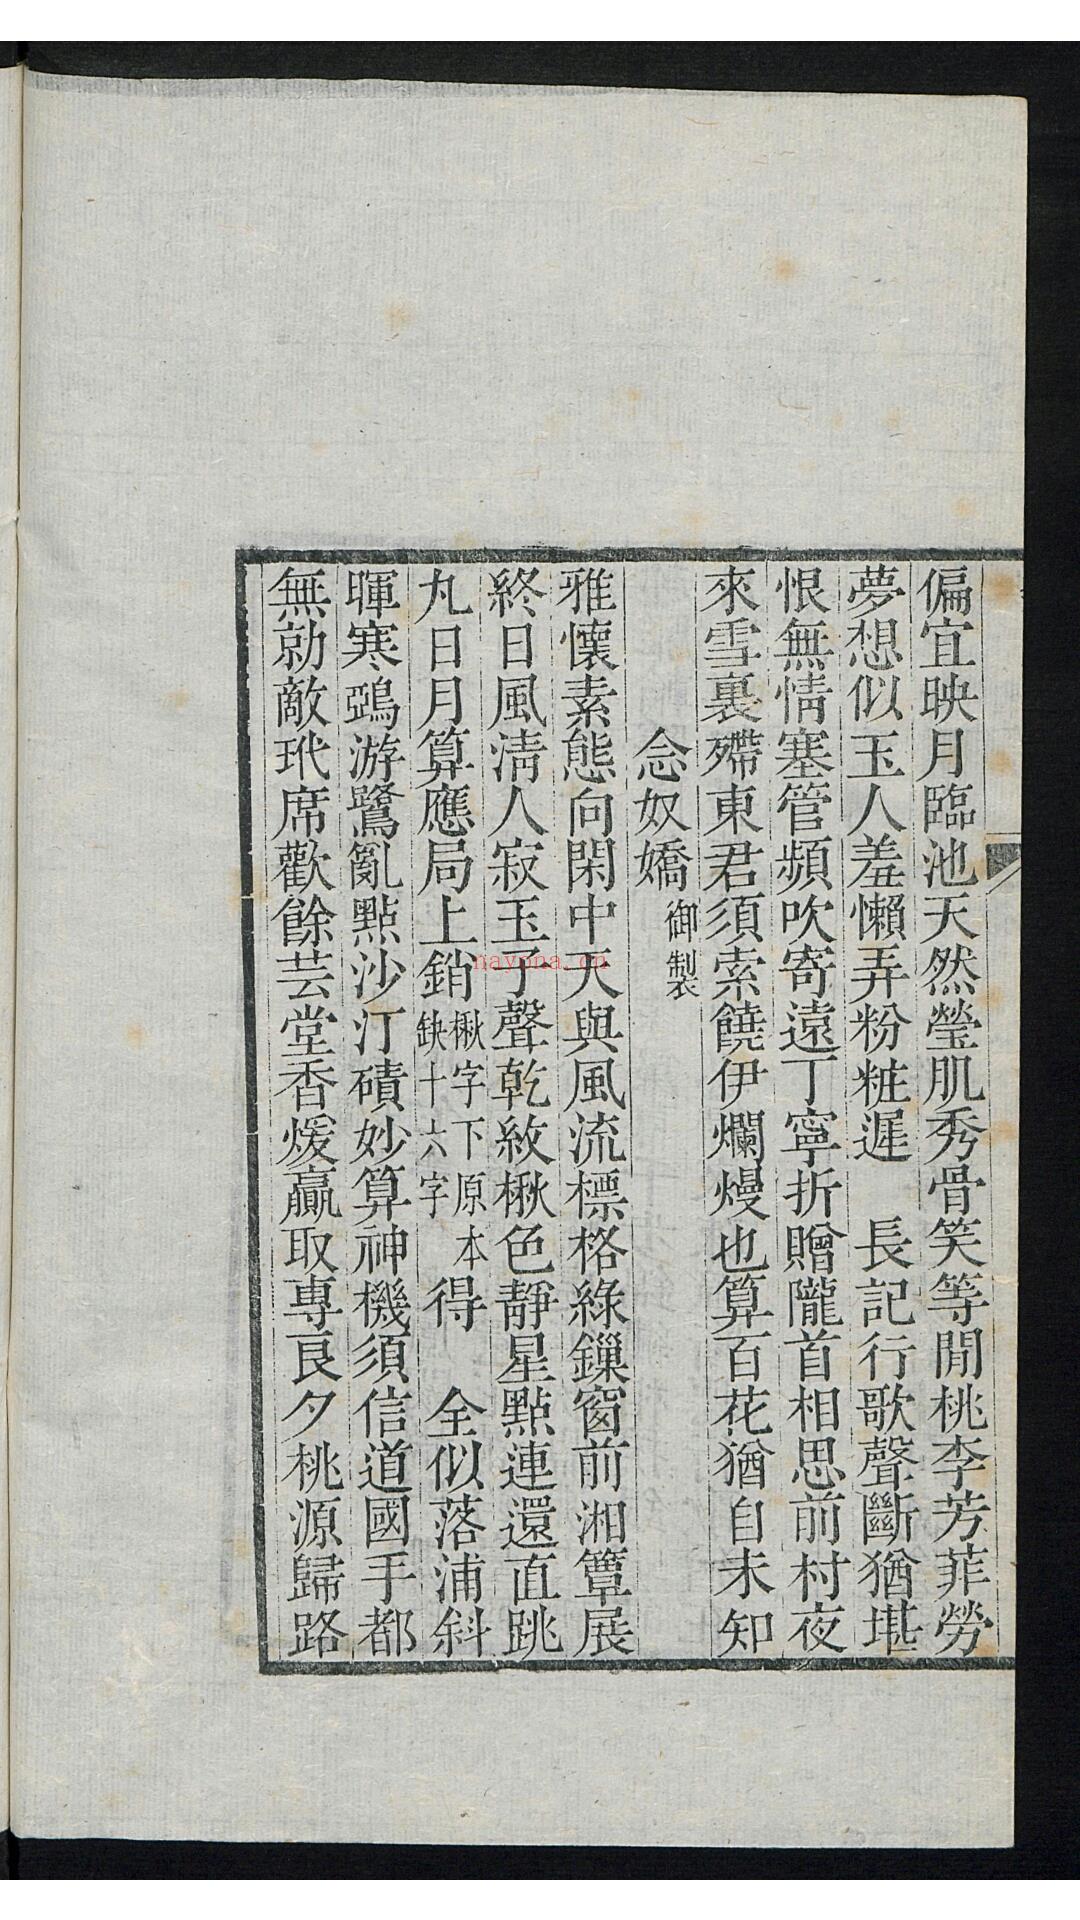 偏宜映月臨池天然瑩肌秀骨笑等閒桃李芳菲勞
夢想似玉人羞懶弄粉粧遲　長記行歌聲斷猶堪
恨無情塞管頻吹寄遠丁寧折贈隴首相思前村夜
來雪裏殢東君須索饒伊爛熳也算百花猶自未知
念奴嬌御製
雅懷素態向閑中天與風流標格綠鏁窗前湘簟展
終日風清人寂玉子聲乾紋楸色靜星點連還直跳
丸日月算應局上銷楸字下原本缺十六字得　全似落浦斜
暉寒鵶游鷺亂點沙汀磧妙算神機須信道國手都
無勍敵玳席歡餘芸堂香煖贏取專良夕桃源歸路
nayona.cn